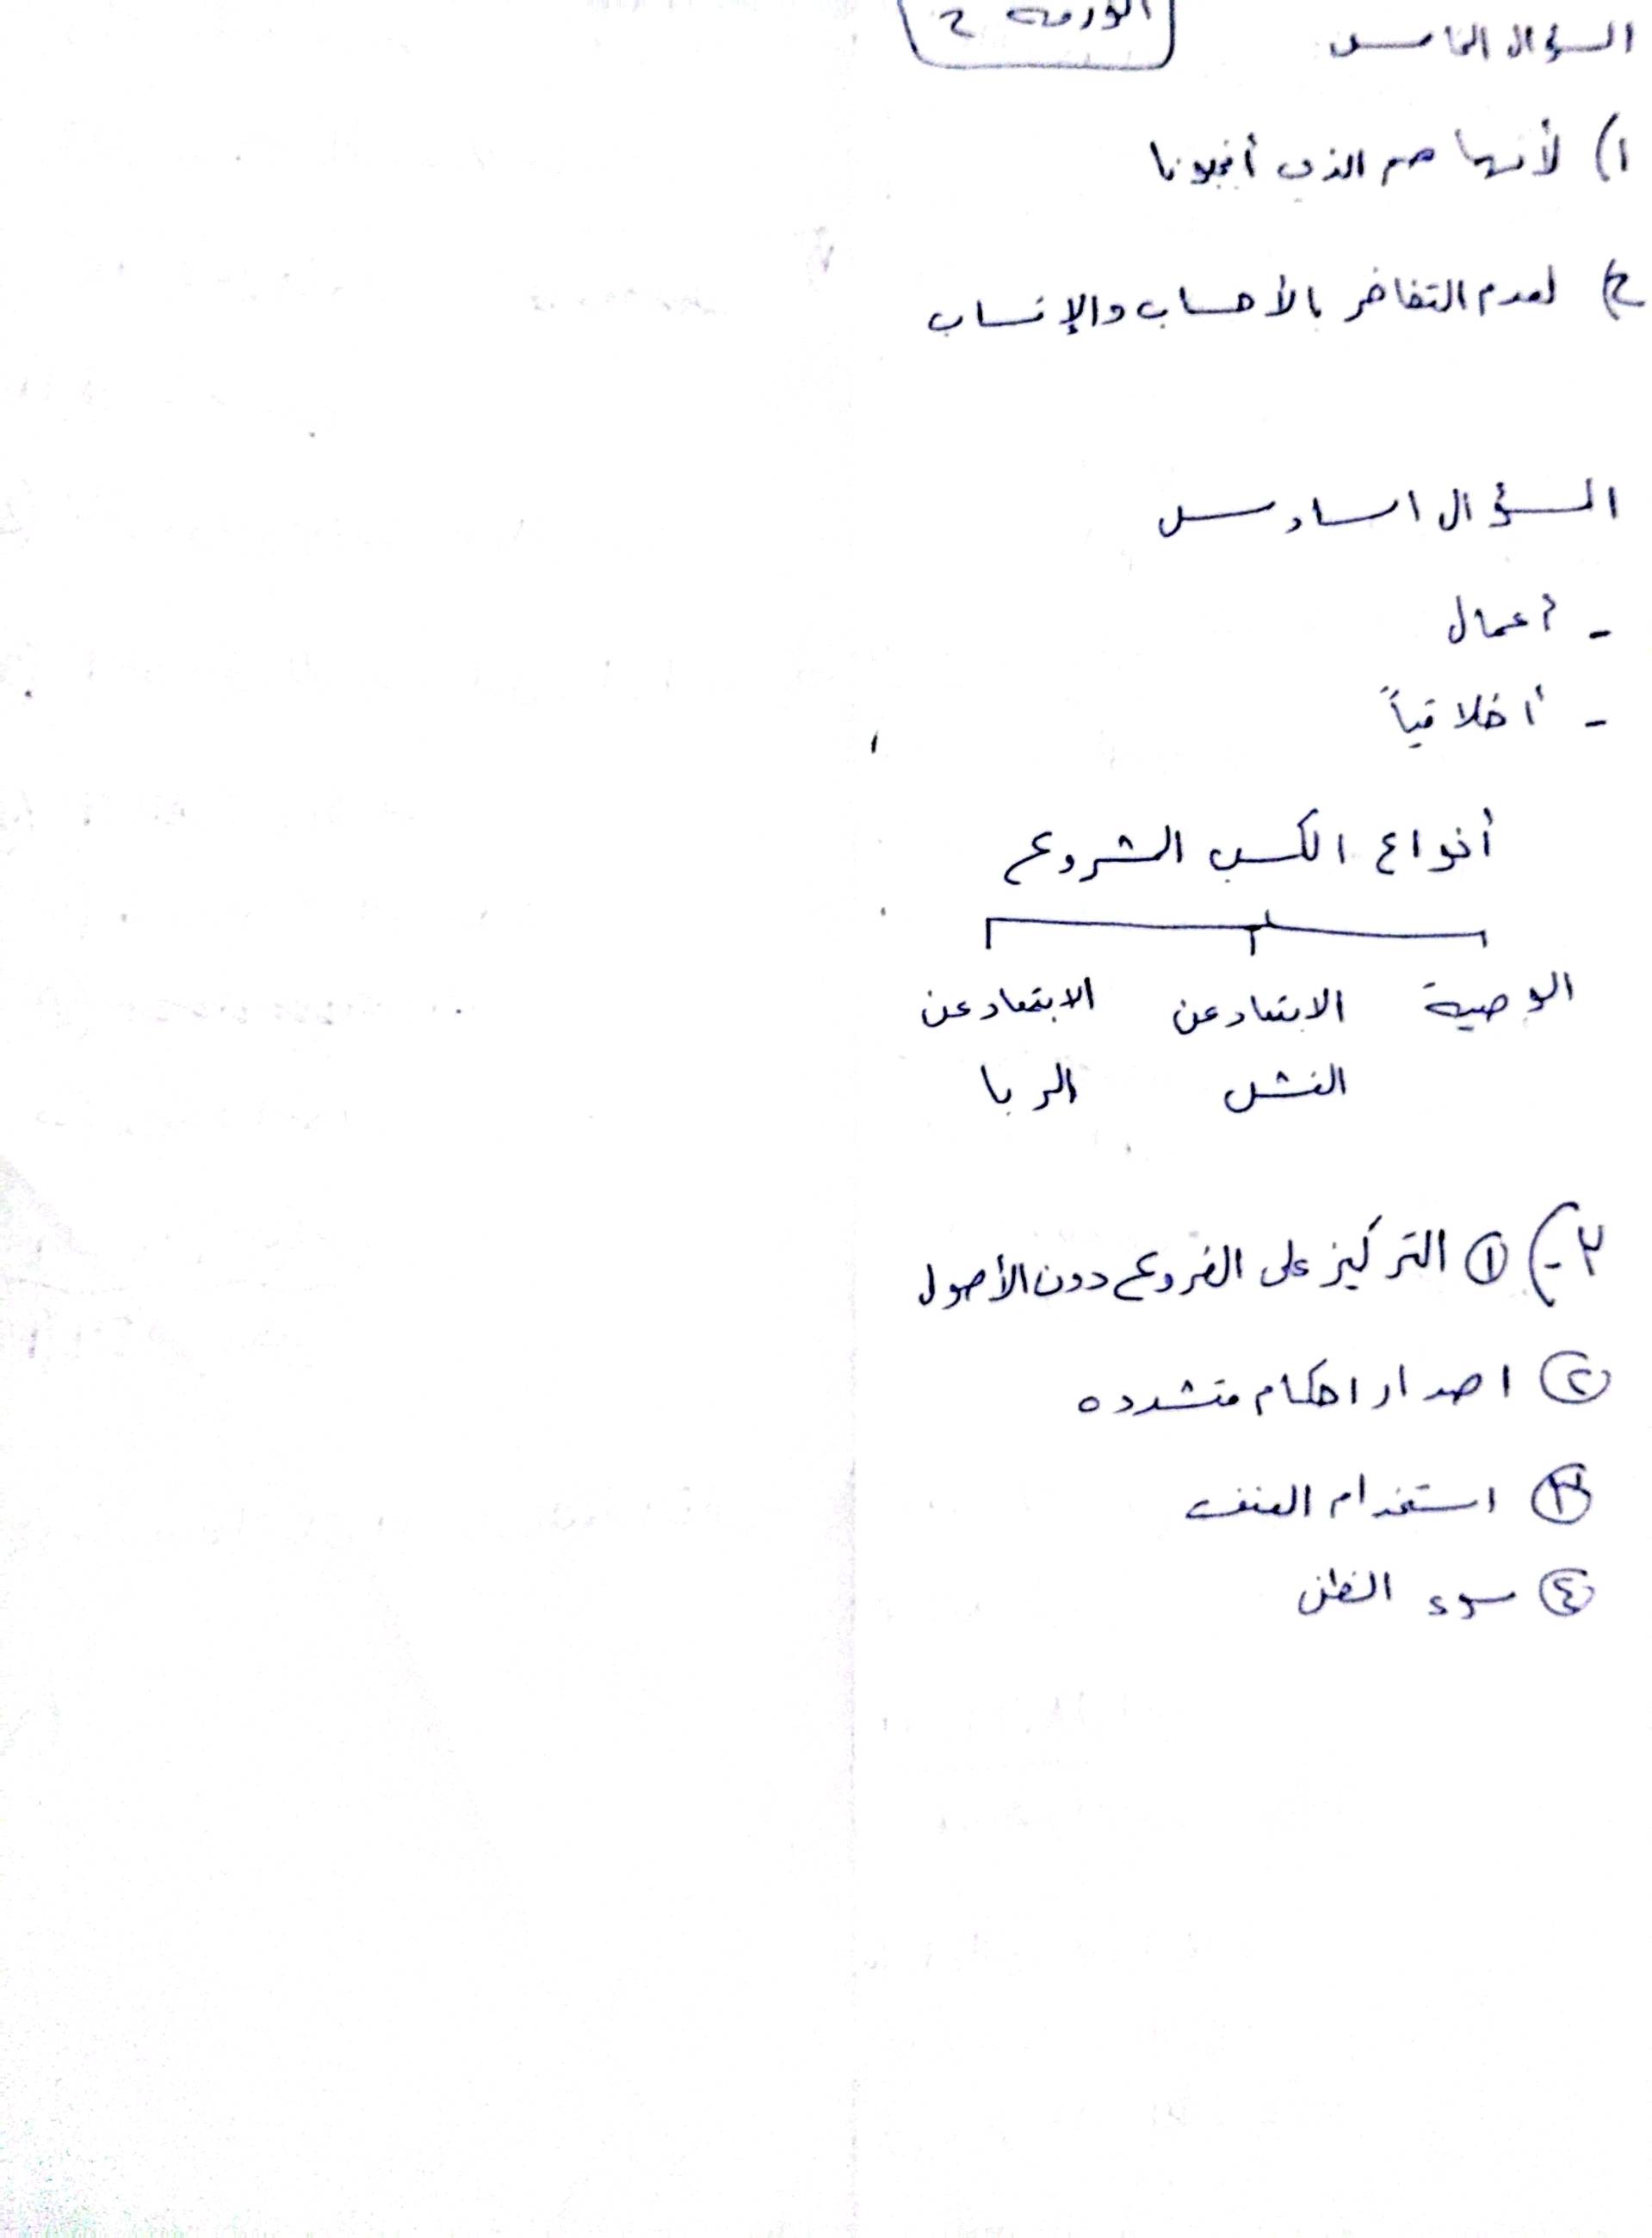 الورقة ٢
السؤال الخامس
١) لأنهما هم الذي أنجبونا
٢) لعدم التفاخر بالأحساب والإنساب
السؤال السادس
- أعمال
- أخلاقياً
أنواع الكسب المشروع
الوصية الابتعاد عن الابتعاد عن
الغش الربا
٣-) ① التركيز على الفروع دون الأصول
② اصدار احكام متشدده
③ استخدام العنف
④ سوء الظن